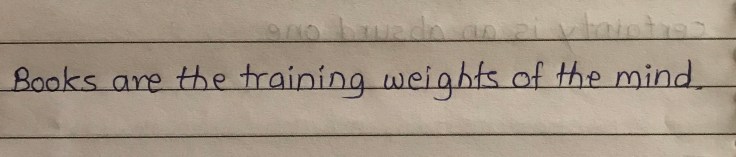 Books are the training weights of the mind.